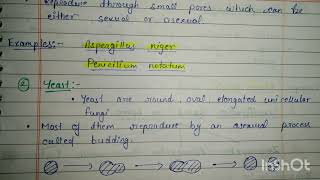 Reproduce through small pores which can be
either sexual or asexual.
Examples:- Aspergillus niger
Penicillium notatum
2 Yeast:-
• Yeast are round, oval elongated unicellular
fungi
• Most of them reproduce by an asexual process
called budding.
InShOt